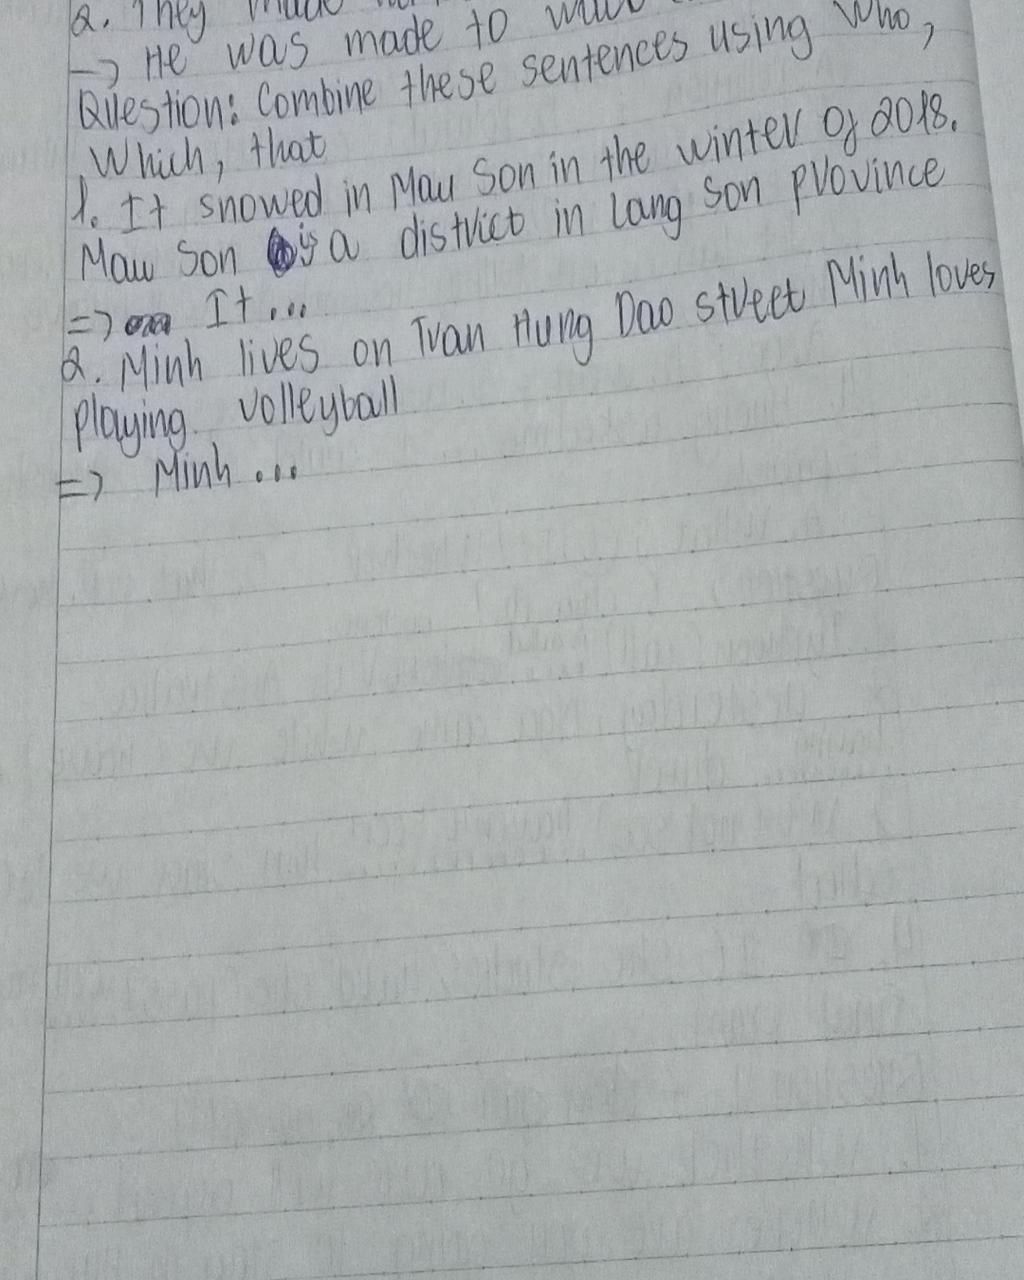 2. They made
→ He was made to
Question: Combine these sentences using Who,
Which, that
1. It snowed in Mau Son in the winter of 2018.
Mau Son is a district in Lang Son province
=> It...
2. Minh lives on Tran Hung Dao street Minh loves
playing volleyball
=> Minh...